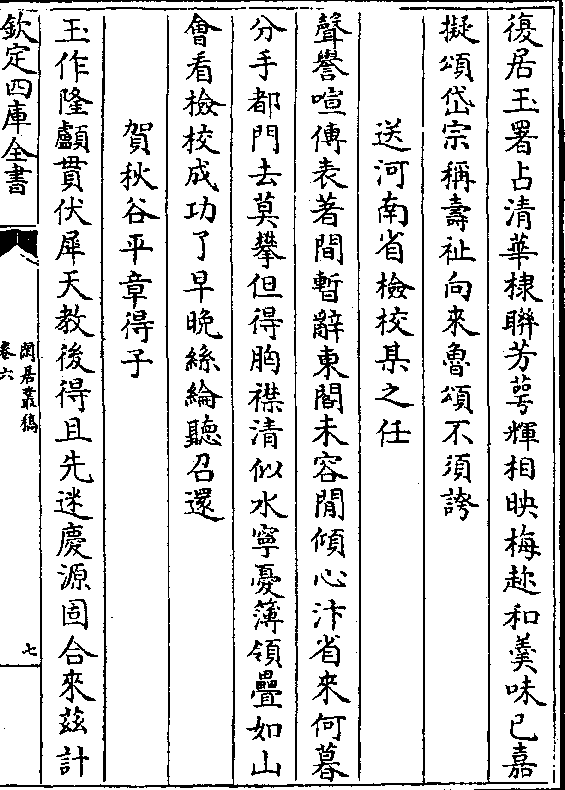 復居玉署占清華棣聯芳萼輝相映梅趂和羹味已嘉
擬頌岱宗稱壽祉向来魯頌不須誇
送河南省檢校某之任
聲譽喧傳表著間暫辭東閣未容閒傾心汴省來何暮
分手都門去莫攀但得胸襟清似水寧憂簿領疊如山
㑹看檢校成功了早晚絲綸聽召還
賀秋谷平章得子
玉作隆顱貫伏犀天教後得且先迷慶源固合來兹計
欽定四庫全書
閑居叢稿
卷六
七